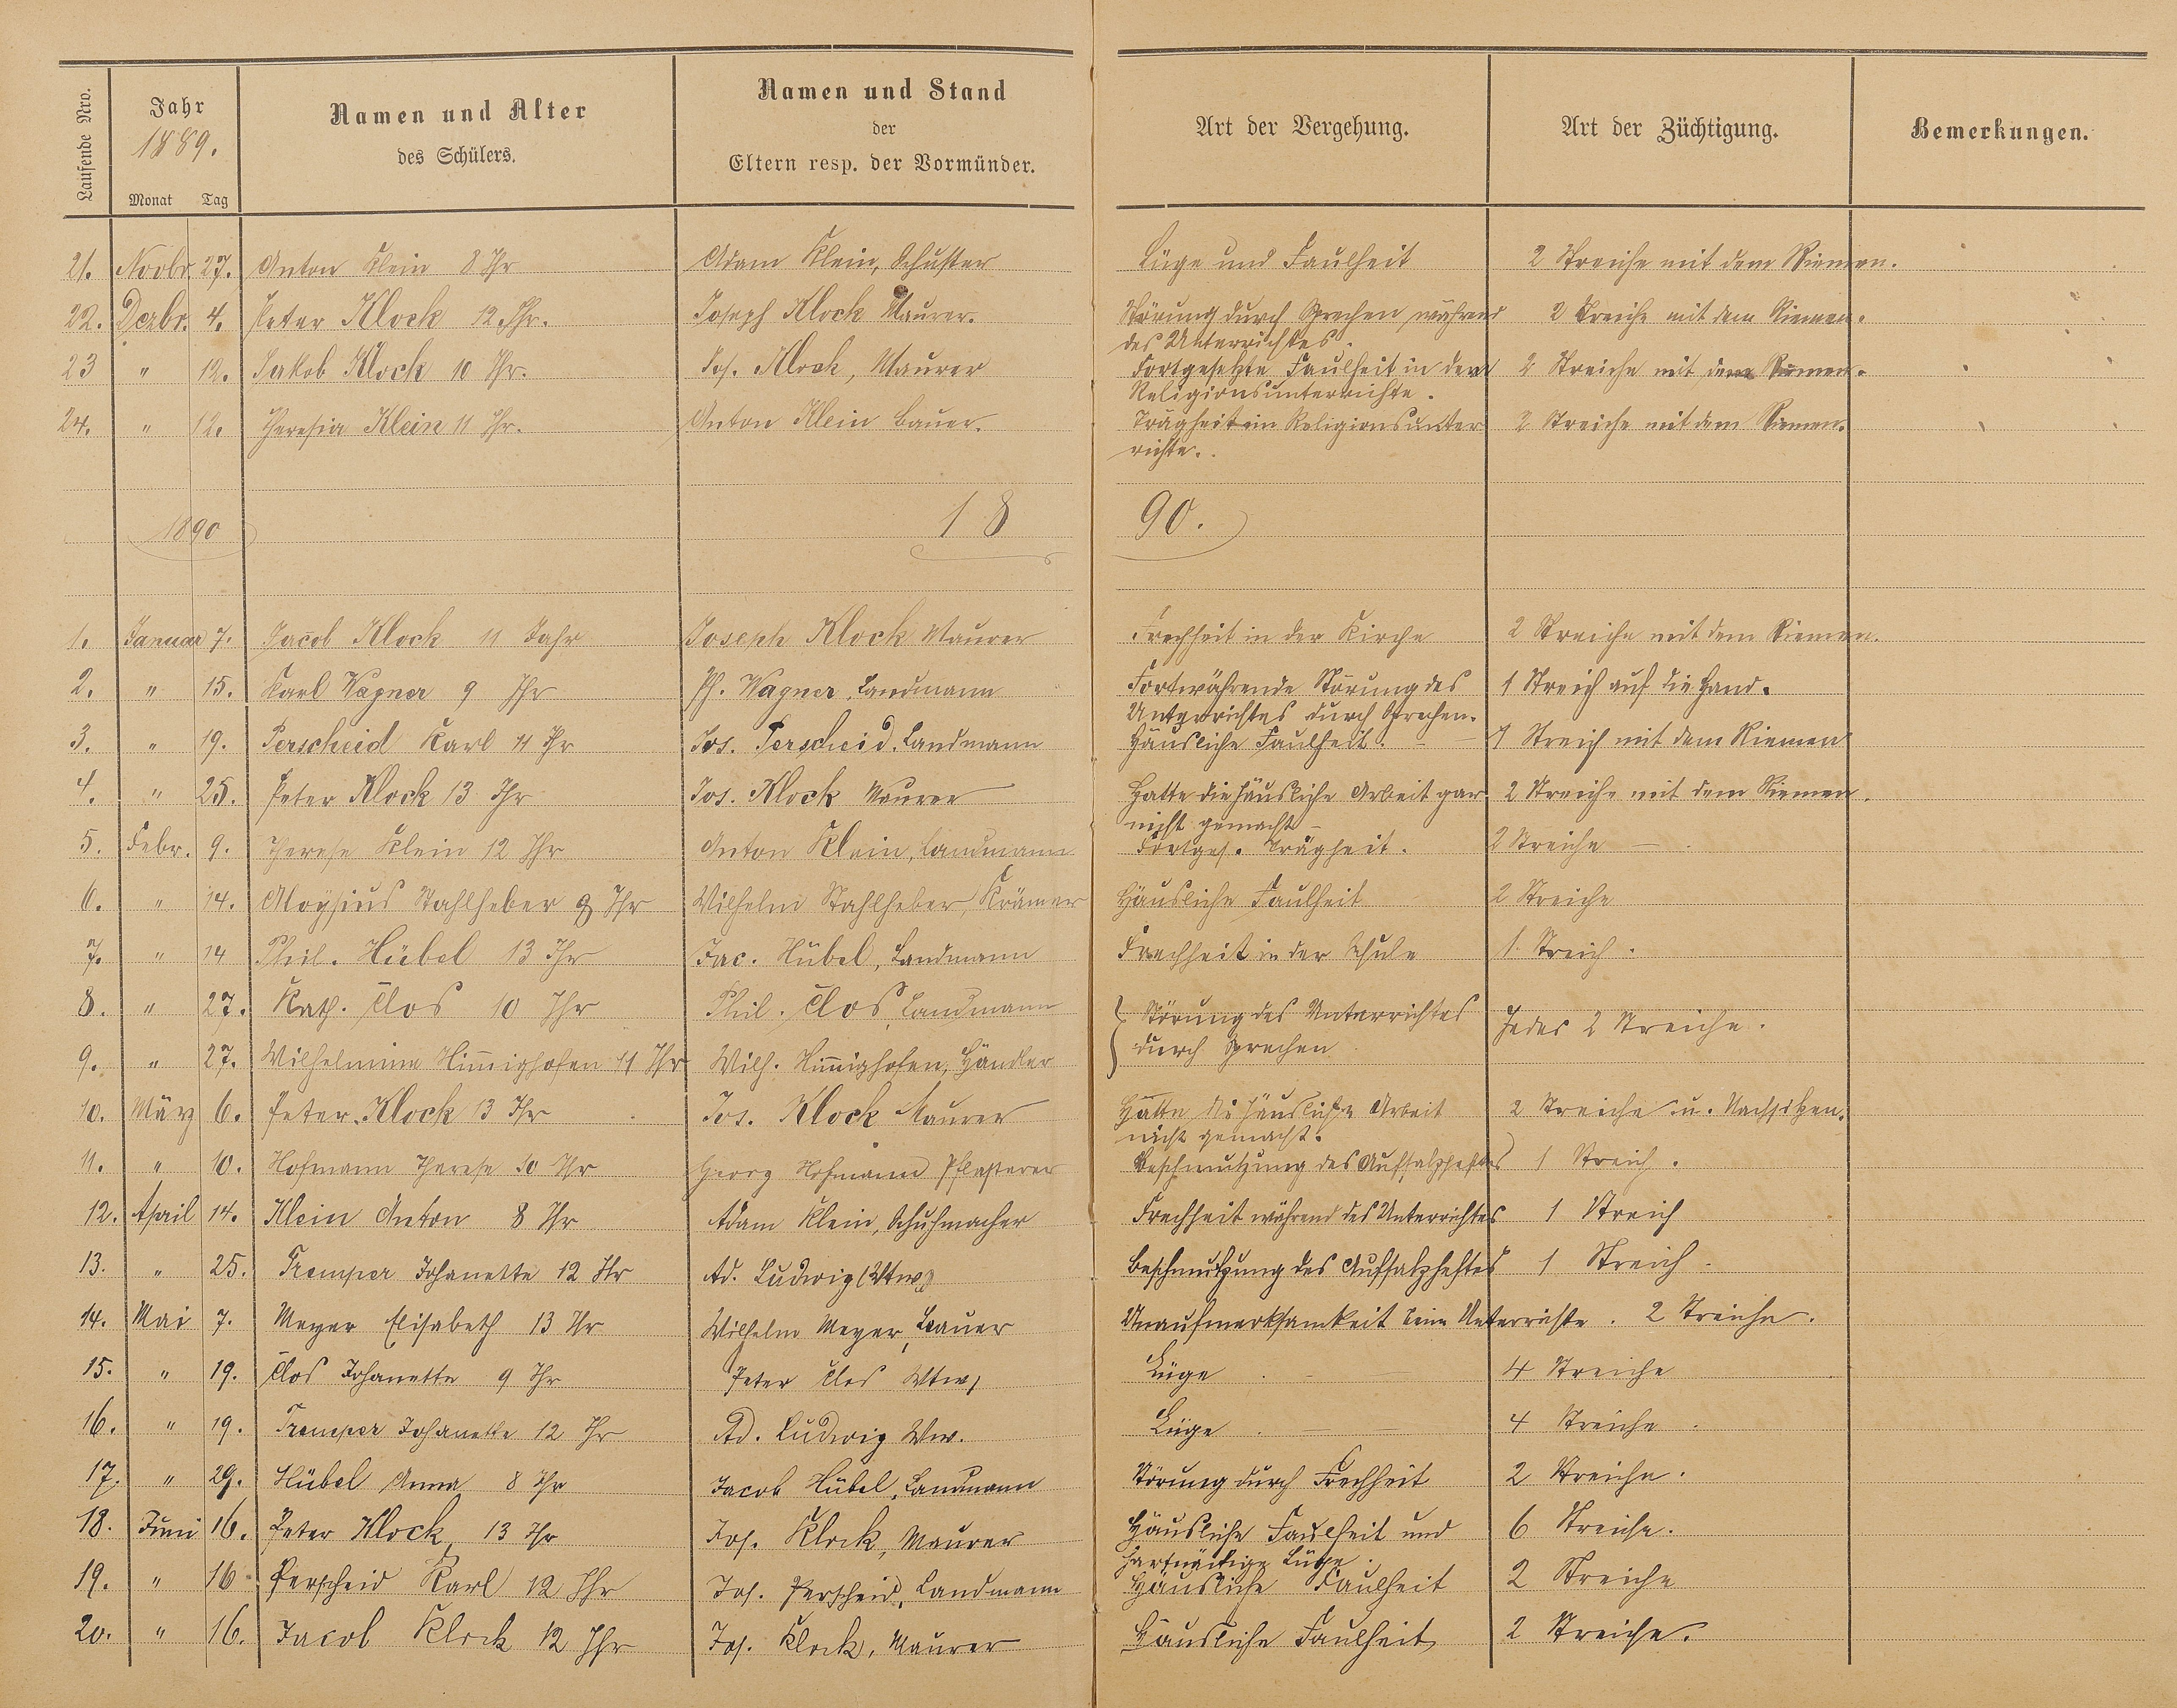 Laufende Nro.
Jahr
1889.
Monat Tag
Namen und Alter
des Schülers.
Namen und Stand
der
Eltern resp. der Vormünder.
Art der Vergehung.
Art der Züchtigung.
Bemerkungen.
21. Novbr. 27. Anton Klein 8 Jhr Adam Klein, Schuster Lüge und Faulheit 2 Streiche mit dem Riemen.
22. Dezbr. 4. Peter Klock 12 Jhr. Joseph Klock Maurer. Störung durch Sprechen während 2 Streiche mit dem Riemen.
des Unterrichtes.
23 " 12. Jakob Klock 10 Jhr. Jos. Klock, Maurer Fortgesetzte Faulheit in dem 2 Streiche mit dem Riemen.
Religionsunterrichte.
24. " 12. Theresia Klein 11 Jhr. Anton Klein Bauer. Trägheit im Religionsunter 2 Streiche mit dem Riemen.
richte.
1890 18 90.
1. Januar 7. Jacob Klock 11 Jahr Joseph Klock Maurer Frechheit in der Kirche 2 Streiche mit dem Riemen.
2. " 15. Karl Wagner 9 Jhr Ph. Wagner, Landmann Fortwährende Störung des 1 Streich auf die Hand.
Unterrichtes durch Sprechen.
3. " 19. Perscheid Karl 11 Jhr Jos. Perscheid, Landmann Häusliche Faulheit. - - 1 Streich mit dem Riemen
4. " 25. Peter Klock 13 Jhr Jos. Klock Maurer Hatte die häusliche Arbeit gar 2 Streiche mit dem Riemen.
nicht gemacht -
5. Febr. 9. Therese Klein 12 Jhr Anton Klein, Landmann Fortges. Trägheit. 2 Streiche -
6. " 14. Aloysius Stahlheber 9 Jhr Wilhelm Stahlheber, Krämer Häusliche Faulheit 2 Streiche
7. " 14 Phil. Hübel 13 Jhr Jac. Hübel, Landmann Frechheit in der Schule 1. Streich.
8. " 27. Kath. Clos 10 Jhr Phil. Clos, Landmann Störung des Unterrichtes Jedes 2 Streiche.
9. " 27. Wilhelmine Himighofen 11 Jhr Wilh. Himighofen, Händler durch Sprechen
10. März 6. Peter Klock 13 Jhr Jos. Klock Maurer Hatte die häusliche Arbeit 2 Streiche u. Nachsitzen.
nicht gemacht.
11. " 10. Hofmann Therese 10 Jhr Georg Hofmann Pflasterer Beschmutzung des Aufsatzheftes 1 Streich.
12. April 14. Klein Anton 8 Jhr Adam Klein, Schuhmacher Frechheit während des Unterrichtes 1 Streich
13. " 25. Tremper Johanette 12 Jhr Ad. Ludwig (Wtw) Beschmutzung des Aufsatzheftes 1 Streich.
14. Mai 7. Meyer Elisabeth 13 Jhr Wilhelm Meyer, Bauer Unaufmerksamkeit beim Unterrichte. 2 Streiche.
15. " 19. Clos Johanette 9 Jhr Peter Clos Wtw, Lüge 4 Streiche
16. " 19. Tremper Johanette 12 Jhr Ad. Ludwig Ww. Lüge 4 Streiche
17. " 29. Hübel Anna 8 Jhr Jacob Hübel, Landmann Störung durch Frechheit 2 Streiche.
18. Juni 16. Peter Klock, 13 Jhr Jos. Klock, Maurer Häusliche Faulheit und 6 Streiche.
hartnäckige Lüge.
19. " 16 Perscheid Karl 12 Jhr Jos. Perscheid, Landmann Häusliche Faulheit 2 Streiche
20. " 16. Jacob Klock 12 Jhr Jos. Klock, Maurer Häusliche Faulheit 2 Streiche.